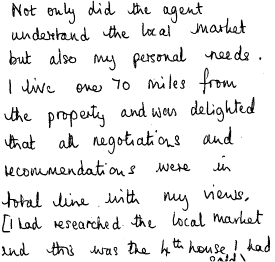 Not only did the agent
understand the local market
but also my personal needs.
I live over 70 miles from
the property and was delighted
that all negotiations and
recommendations were in
total line with my views.
[I had researched the local market
and this was the 4th house I had
sold)